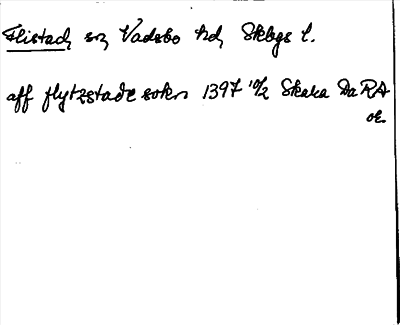 Flistad, sn, Vadsbo hd, Skbgs l.
aff flytzstade sokn 1397 10/2 Skara Da RA
or.